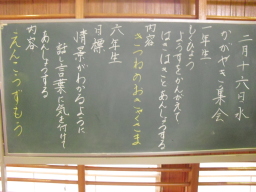 二月十六日(水)
かがやき集会
一年生
もくひょう
ようすをかんがえて
はきはきとあんしょうする
内容
きつねのおきゃくさま
六年生
目標
情景がわかるように
話し言葉に気を付けて
あんしょうする
内容
えんこうずもう